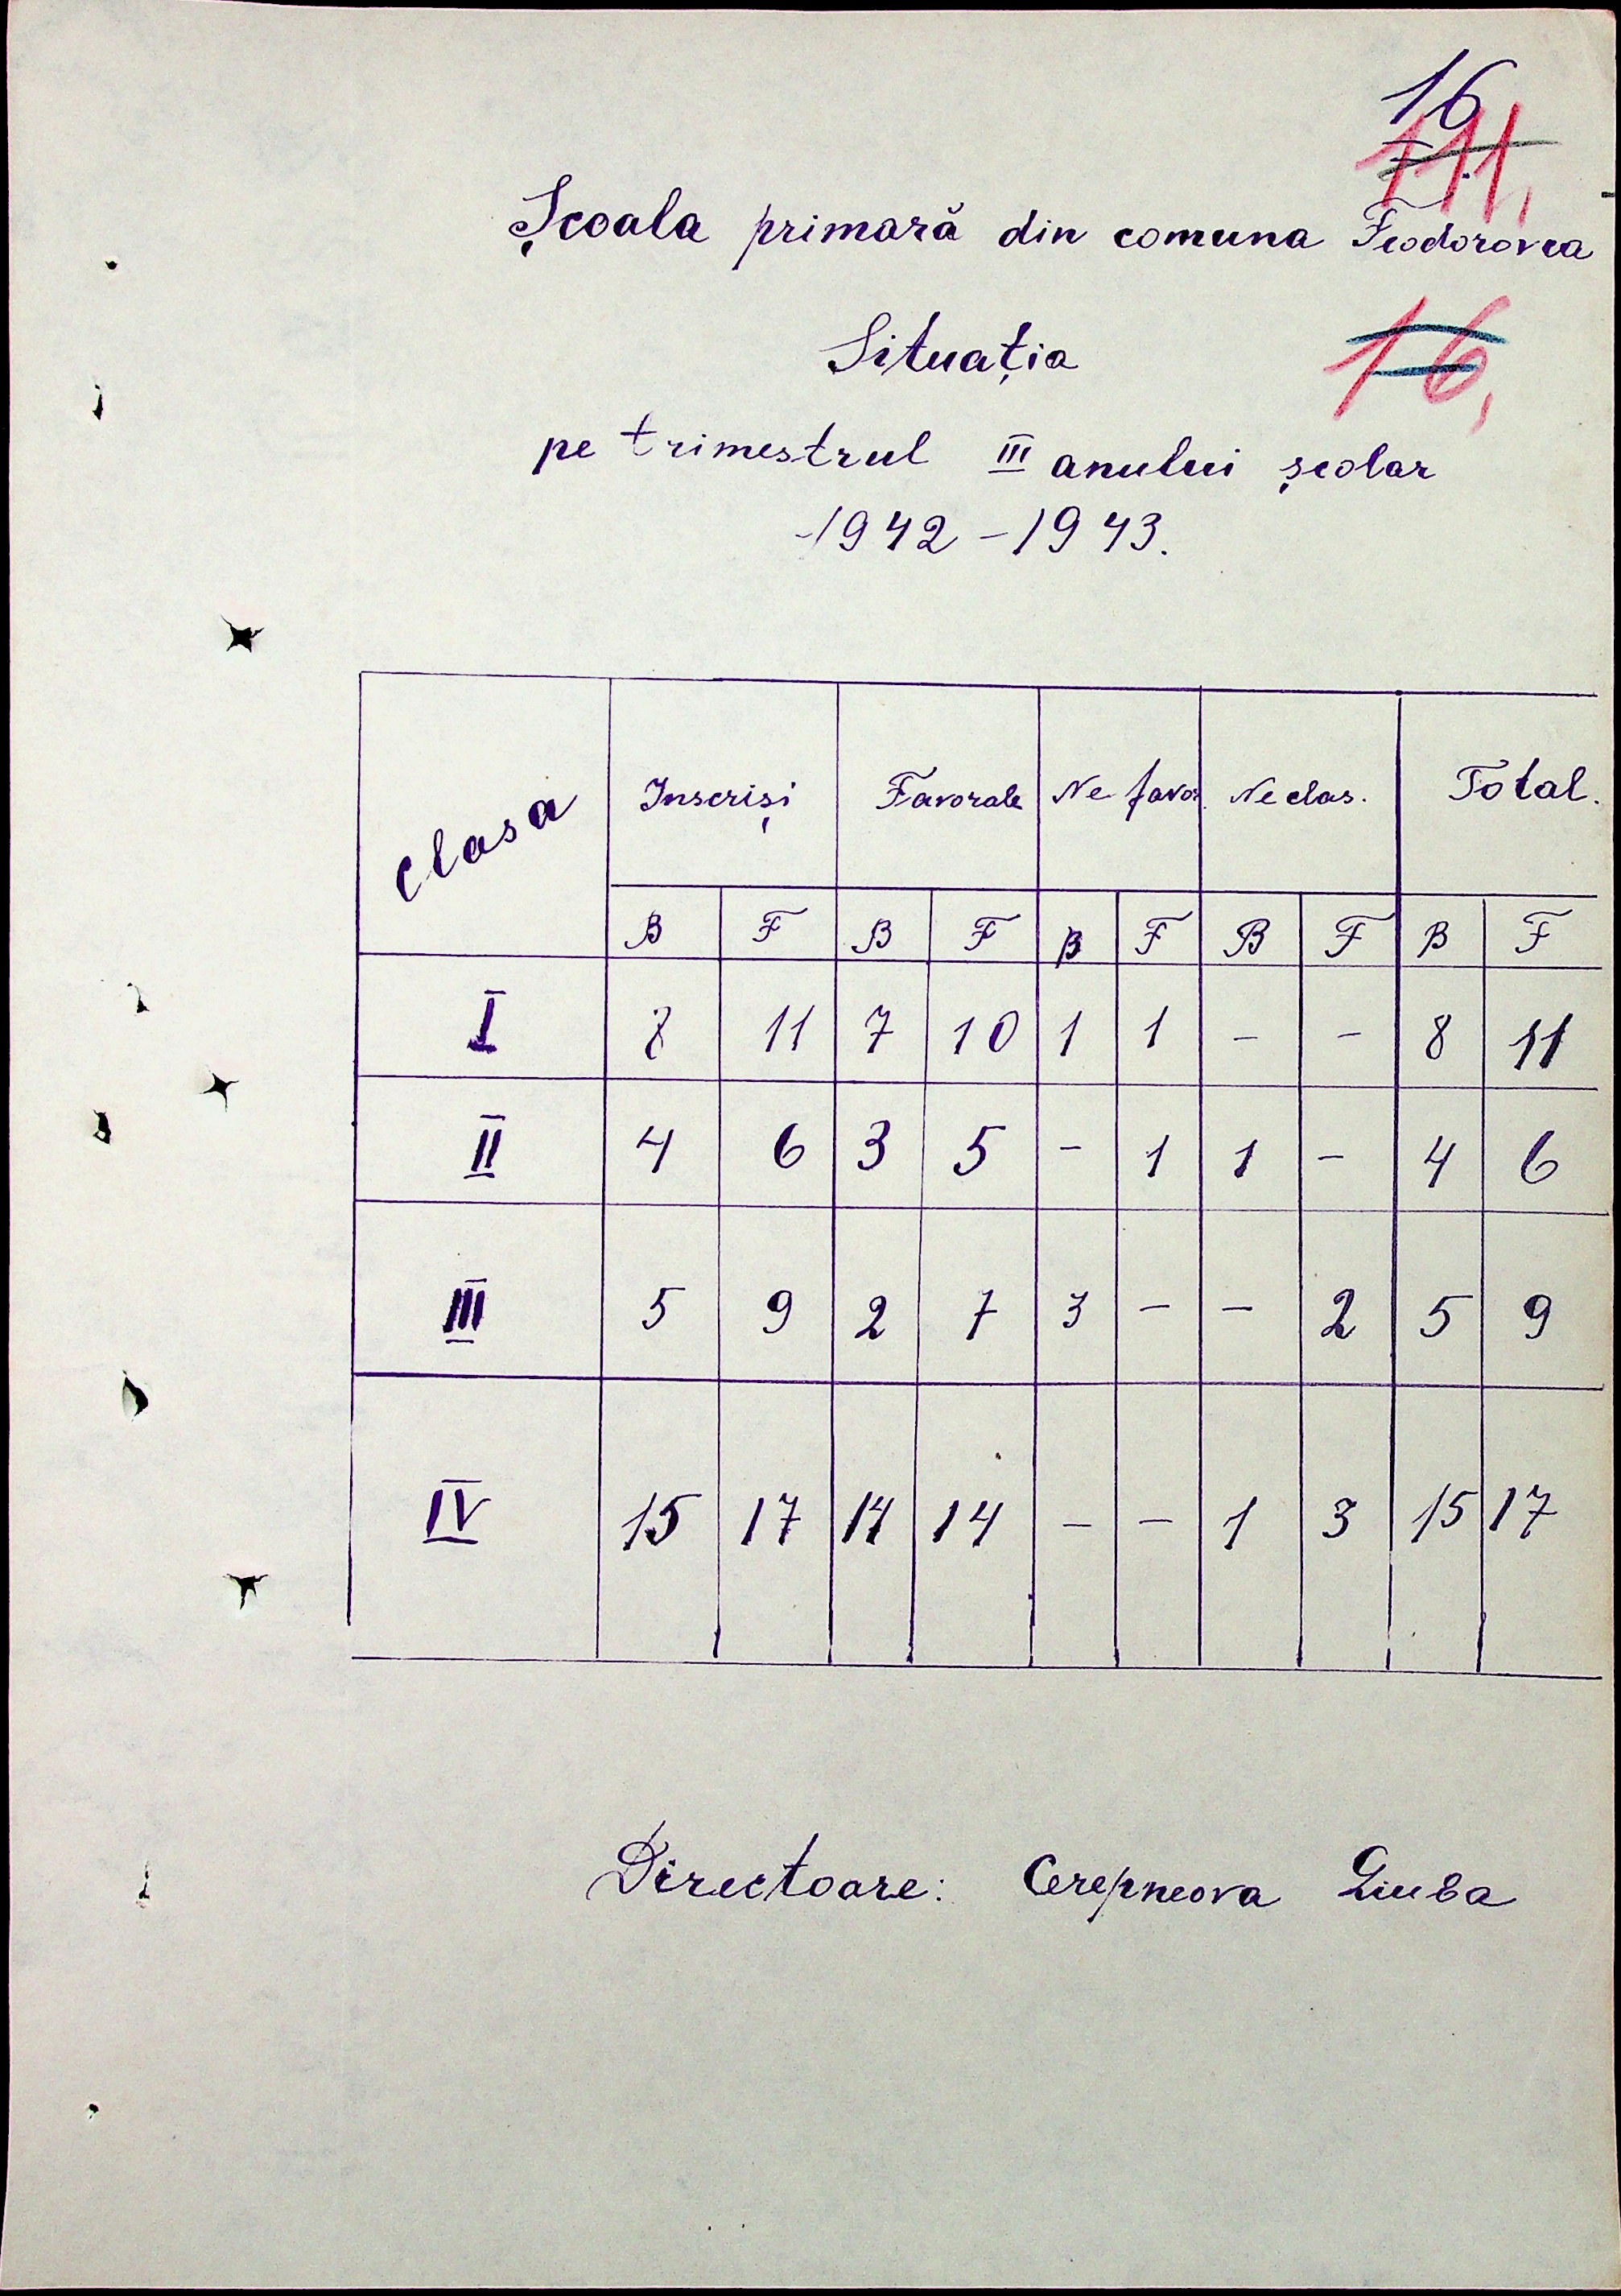 16
111,
Școala primară din comuna Feodorovca
Situația
16,
pe trimestrul III anului școlar
1942 - 1943.
Clasa Inscriși Favorale Ne favor. Neclas. Total.
B F B F B F B F B F
I 8 11 7 10 1 1 - - 8 11
II 4 6 3 5 - 1 1 - 4 6
III 5 9 2 7 3 - - 2 5 9
IV 15 17 14 14 - - 1 3 15 17
Directoare: Cerepneova Liuba